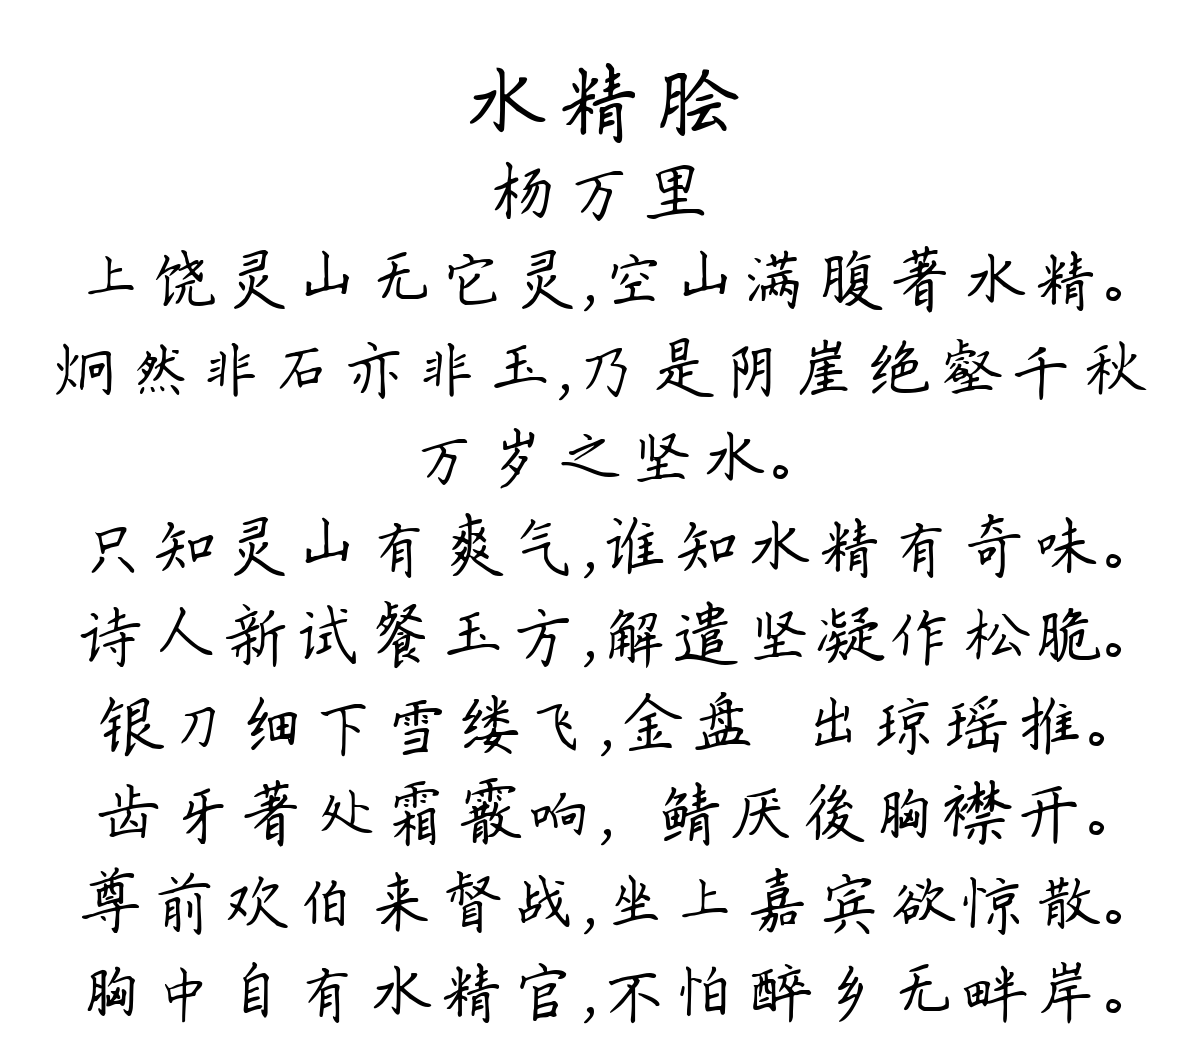 水精脍
杨万里
上饶灵山无它灵,空山满腹著水精。
炯然非石亦非玉,乃是阴崖绝壑千秋
万岁之坚水。
只知灵山有爽气,谁知水精有奇味。
诗人新试餐玉方,解遣坚凝作松脆。
银刀细下雪缕飞,金盘 出琼瑶推。
齿牙著处霜霰响, 鲭厌後胸襟开。
尊前欢伯来督战,坐上嘉宾欲惊散。
胸中自有水精官,不怕醉乡无畔岸。